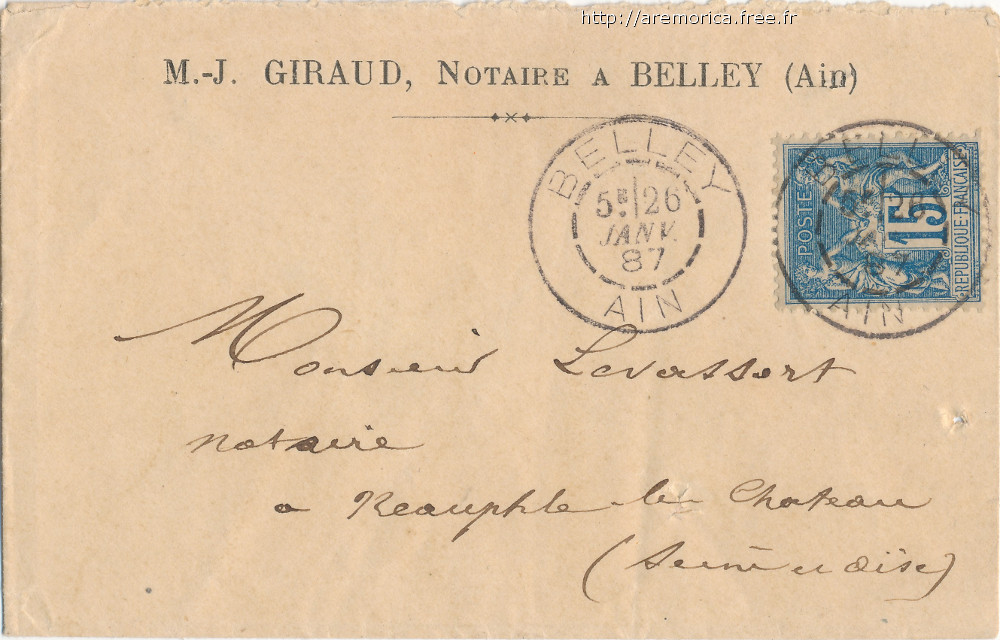 http://aremorica.free.fr
M.-J. GIRAUD, NOTAIRE A BELLEY (Ain)
BELLEY
5E 26
JANV.
87
AIN
POSTES
15
REPUBLIQUE FRANÇAISE
BELLEY
AIN
Monsieur Levassort
notaire
a Neauphle le Chateau
(Seine et Oise)